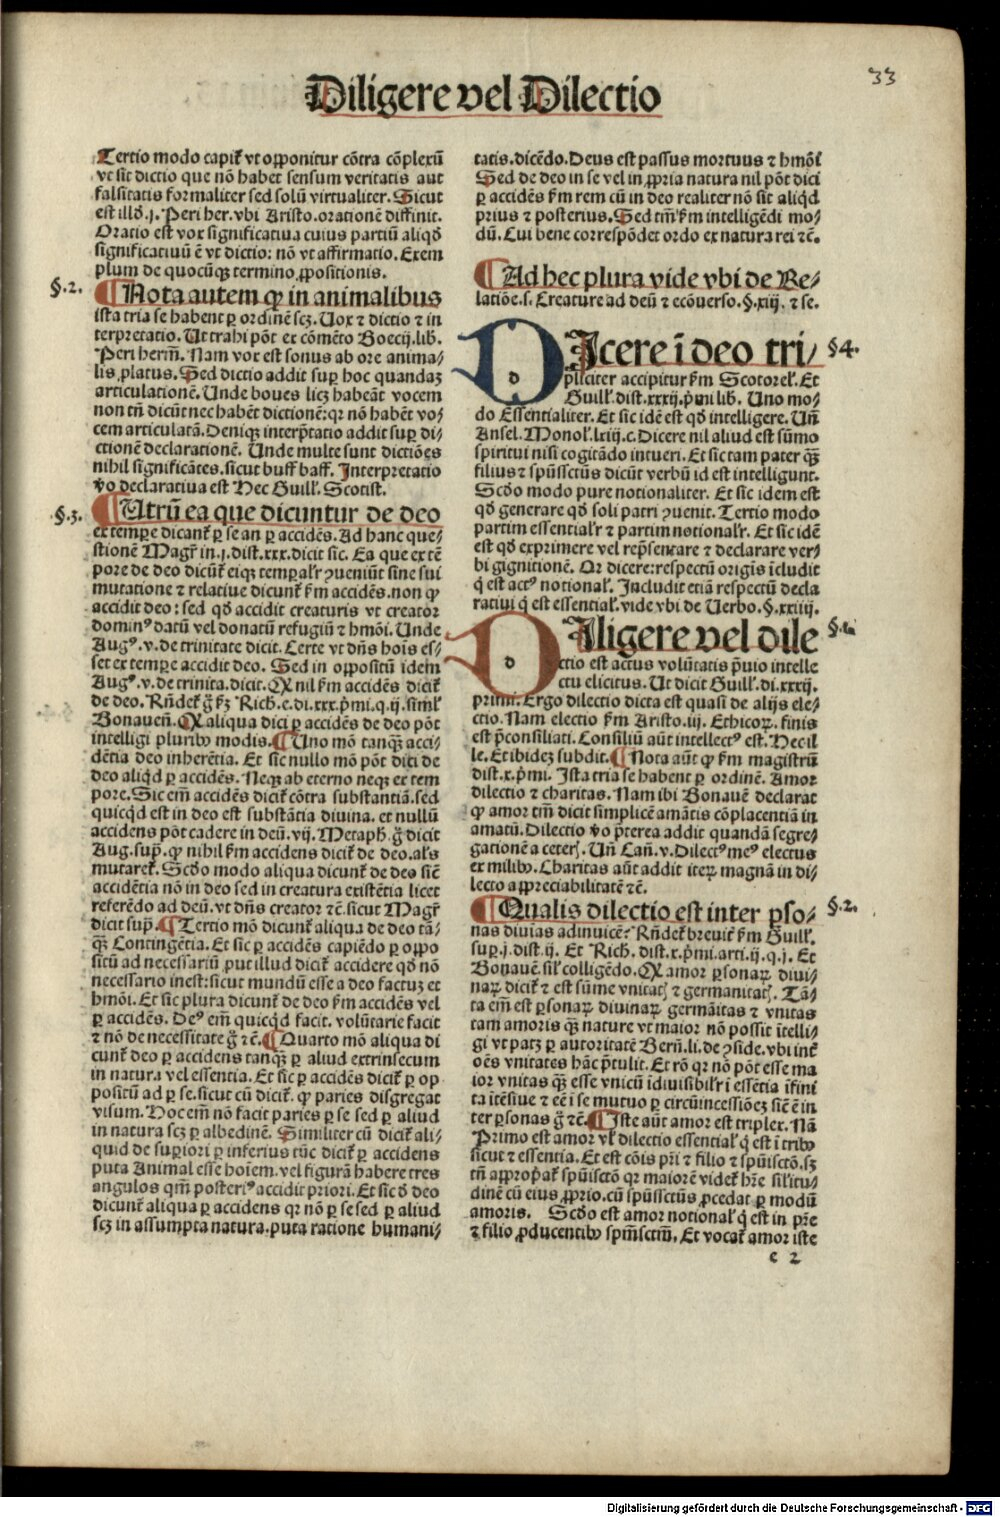 33
Diligere vel Dilectio
Tertio modo capit᷑ vt opponitur cōtra cōplexū
vt sit dictio que nō habet sensum veritatis aut
falsitatis formaliter sed solū virtualiter. Sicut
est illḋ.j. Peri her. vbi Aristo. orationē diffinit.
Oratio est vox significatiua cuius partiū aliqḋ
significatiuū ē vt dictio: nō vt affirmatio. Exem
plum de quocūqꝫ termino ꝓpositionis.
§.2. ¶ Nota autem ꝙ in animalibus
ista tria se habent ꝑ ordinē scꝫ. Vox ⁊ dictio ⁊ in
terpretatio. Ut trahi pōt ex cōmēto Boecij. lib.
Peri herm̄. Nam vox est sonus ab ore anima⸗
lis ꝓlatus. Sed dictio addit suꝑ hoc quandaꝫ
articulationē. Unde boues licꝫ habeāt vocem
non tn̄ dicūt nec habēt dictionē: qꝛ nō habēt vo⸗
cem articulatā. Deniqꝫ interp̄tatio addit suꝑ di⸗
ctionē declarationē. Unde multe sunt dictiōes
nihil significātes. sicut buff baff. Interpretatio
v̊o declaratiua est Hec Guill᷑. Scotist.
§.3. ¶ Utrū ea que dicuntur de deo
ex tempe dicant᷑ ꝑ se an ꝑ accidēs. Ad hanc que⸗
stionē Magr̄ in.j. dist.xxx. dicit sic. Ea que ex tē
pore de deo dicūt᷑ eiqꝫ tempal᷑r ꝯueniūt sine sui
mutatione ⁊ relatiue dicunt᷑ ẜm accidēs. non ꝙ
accidit deo: sed qḋ accidit creaturis vt creator
dominꝰ datū vel donatū refugiū ⁊ hmōi. Unde
Augꝰ.v. de trinitate dicit. Certe vt dn̄s hois es⸗
set ex tempe accidit deo. Sed in oppositū idem
Augꝰ.v. de trinita. dicit. Ꝙ nil ẜm accidēs dicit᷑
de deo. Rn̄det᷑ g̊ ẜꝫ Rich. e. di. xxx. p̄mi. q. ij. simil᷑
Bonauen̄. Ꝙ aliqua dici ꝑ accidēs de deo pōt
intelligi pluribꝰ modis. ¶ Uno mō tanqꝫ acci⸗
dētia deo inherētia. Et sic nullo mō pōt dici de
deo aliqḋ ꝑ accidēs. Neqꝫ ab eterno neqꝫ ex tem
pore. Sic em̄ accidēs dicit᷑ cōtra substantiā. sed
quicqḋ est in deo est substātia diuina. et nullū
accidens pōt cadere in deū. vij. Metaph. g̊ dicit
Aug. sup̄. ꝙ nihil ẜm accidens dicit᷑ de deo. al̄s
mutaret᷑. Scḋo modo aliqua dicunt᷑ de deo ẜm
accidētia nō in deo sed in creatura existētia licet
referēdo ad deū. vt dn̄s creator ⁊c̄. sicut Magr̄
dicit sup̄. ¶ Tertio mō dicunt᷑ aliqua de deo tā⸗
qꝫ Contingētia. Et sic ꝑ accidēs capiēdo ꝑ oppo
sitū ad necessariū. put illud dicit᷑ accidere qḋ nō
necessario inest: sicut mundū esse a deo factuꝫ et
hmōi. Et sic plura dicunt᷑ de deo ẜm accidēs vel
ꝑ accidēs. Deꝰ em̄ quicqḋ facit. volūtarie facit
⁊ nō de necessitate g̊ ⁊c̄. ¶ Quarto mō aliqua di
cunt᷑ deo ꝑ accidens tanqꝫ ꝑ aliud extrinsecum
in natura vel essentia. Et sic ꝑ accidēs dicit᷑ ꝑ op
positū ad ꝑ se. sicut cū dicit᷑. ꝙ paries disgregat
visum. Hoc em̄ nō facit paries ꝑ se sed ꝑ aliud
in natura scꝫ ꝑ albedinē. Similiter cū dicit᷑ ali⸗
quid de suꝑiori ꝑ inferius tūc dicit᷑ ꝑ accidens
puta Animal esse hoiem. vel figurā habere tres
angulos qm̄ posteriꝰ accidit priori. Et sic ḋ deo
dicunt᷑ aliqua ꝑ accidens qꝛ nō ꝑ se sed ꝑ aliud
scꝫ in assumpta natura. puta ratione humani⸗
tatis. dicēdo. Deus est passus mortuus ⁊ hmōi
Sed de deo in se vel in ꝓpria natura nil pōt dici
ꝑ accidēs ẜm rem cū in deo realiter nō sit aliqḋ
prius ⁊ posterius. Sed tm̄ ẜm intelligēdi mo⸗
dū. Cui bene correspōdet ordo ex natura rei ⁊c̄.
¶ Ad hec plura vide vbi de Re⸗
latiōe. s. Creature ad deū ⁊ ecōuerso. §.xiij. ⁊ se.
DIcere ī deo tri⸗ §4.
pliciter accipitur ẜm Scotorel᷑. Et
Guill᷑. dist. xxxij. p̄mi lib. Uno mo⸗
do Essentialiter. Et sic idē est qḋ intelligere. Un̄
Ansel. Monol᷑. lxiij. c. Dicere nil aliud est sūmo
spiritui nisi cogitādo intueri. Et sic tam pater qꝫ
filius ⁊ spūssctūs dicūt verbū id est intelligunt.
Scḋo modo pure notionaliter. Et sic idem est
qḋ generare qḋ soli patri ꝯuenit. Tertio modo
partim essential᷑r ⁊ partim notional᷑r. Et sic idē
est qḋ exprimere vel rep̄sentare ⁊ declarare ver⸗
bi gignitionē. Or dicere: respectū origīs īcludit
q̇ est actꝰ notional᷑. Includit etiā respectū decla
ratiui q̇ est essential᷑. vide vbi de Verbo. §.xxiiij.
DIligere vel dile §.1.
ctio est actus volūtatis p̄uio intelle
ctu elicitus. Ut dicit Guill᷑. di. xxxij.
primi. Ergo dilectio dicta est quasi de alijs ele⸗
ctio. Nam electio ẜm Aristo. iij. Ethicoꝝ. finis
est p̄consiliati. Consiliū aūt intellectꝰ est. Hec il
le. Et ibidez subdit. ¶ Nota aūt ꝙ ẜm magistrū
dist. x. p̄mi. Ista tria se habent ꝑ ordinē. Amor
dilectio ⁊ charitas. Nam ibi Bonauē declarat
ꝙ amor tm̄ dicit simplicē amātis cōplacentiā in
amatū. Dilectio v̊o p̄terea addit quandā segre⸗
gationē a ceteꝝ. Un̄ Can̄. v. Dilectꝰ meꝰ electus
ex milibꝰ. Charitas aūt addit iteꝝ magnā in di⸗
lecto appreciabilitatē ⁊c̄.
¶ Qualis dilectio est inter pso⸗ §.2.
nas diuīas adinuicē? Rn̄det᷑ breuit᷑ ẜm Guill᷑.
sup. j. dist. ij. Et Rich. dist. x. p̄mi. arti. ij. q. j. Et
Bonauē. sil᷑ colligēdo. Ꝙ amor ꝑsonaꝝ diui⸗
naꝝ dicit᷑ ⁊ est sūme vnitatꝭ ⁊ germanitatꝭ. Tā⸗
ta em̄ est ꝑsonaꝝ diuinaꝝ germāitas ⁊ vnitas
tam amoris qꝫ nature vt maior nō possit ītelli⸗
gi vt patꝫ ꝑ autoritatē Bern̄. li. de ꝯside. vbi int᷑
oēs vnitates hāc p̄tulit. Et rō qꝛ nō pōt esse ma
ior vnitas qꝫ esse vnicū īdiuisibil᷑r ī essētia īfini
ta ītēsiue ⁊ eē ī se mutuo ꝑ circūincessiōeꝫ sic̄ ē in
ter ꝑsonas g̊ ⁊c̄. ¶ Iste aūt amor est triplex. Nā
Primo est amor vl᷑ dilectio essential᷑ q̇ est ī tribꝰ
sicut ⁊ essentia. Et est cōis pr̄i ⁊ filio ⁊ spūisctō. sꝫ
tn̄ appropat᷑ spūisctō qꝛ maiorē videt᷑ hr̄e sil᷑itu⸗
dinē cū eius ꝓprio. cū spūssctūs ꝓcedat ꝑ modū
amoris. Scḋo est amor notional᷑ q̇ est in pr̄e
⁊ filio ꝓducentibꝰ spm̄sctm̄. Et vocat᷑ amor iste
e 2
Digitalisierung gefördert durch die Deutsche Forschungsgemeinschaft - DFG